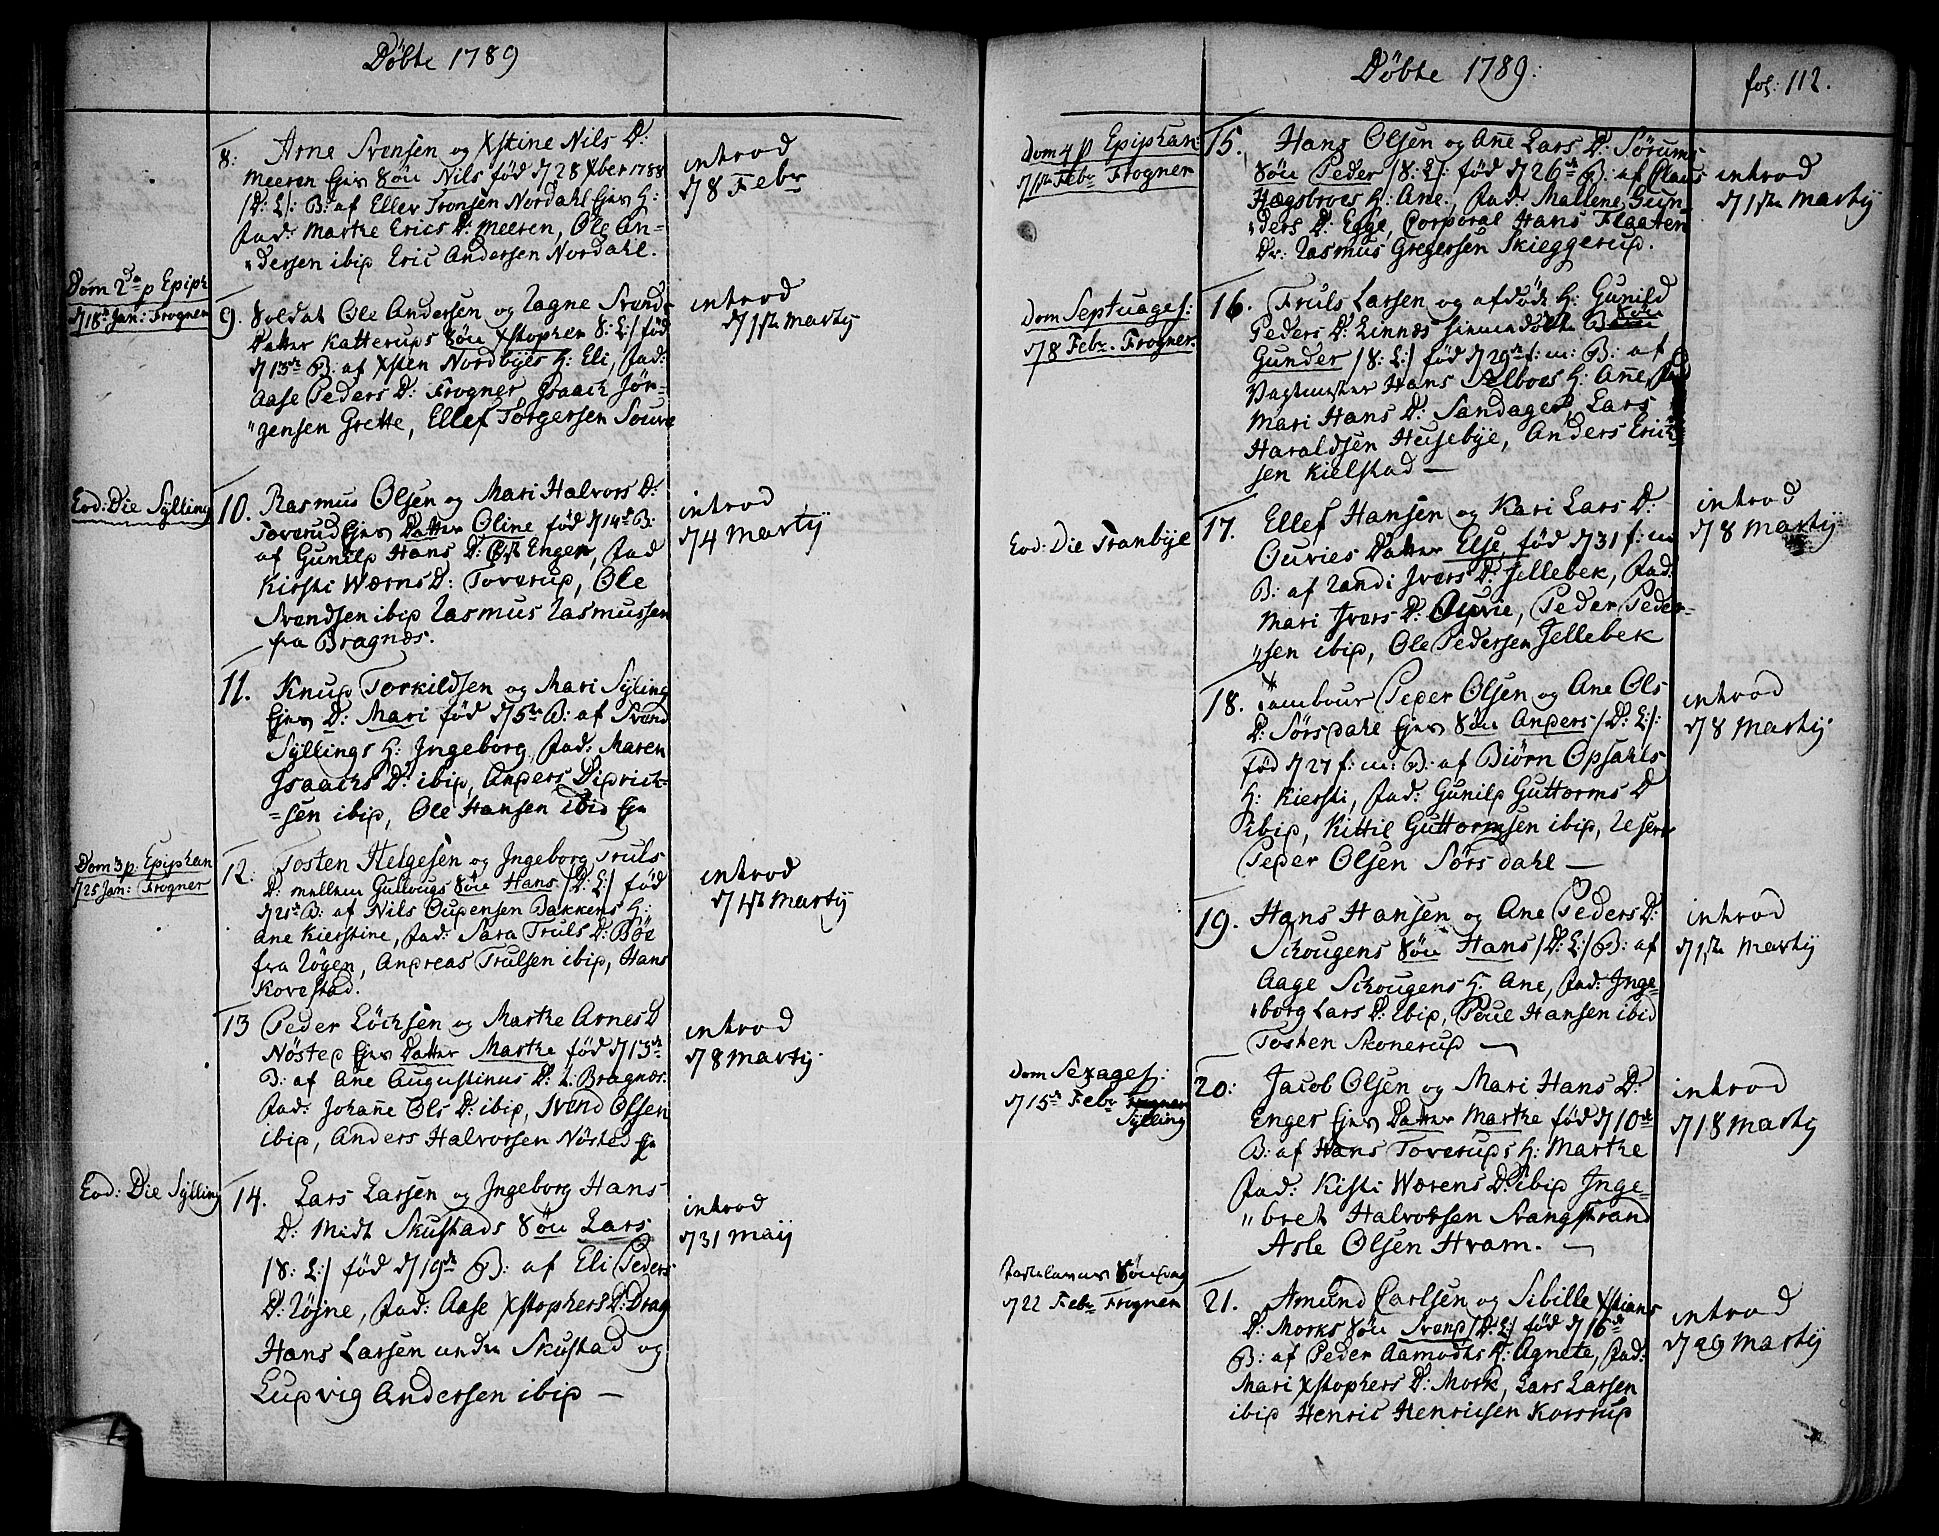 Døbte 1789
8: Arne Svensen og Xstine Nils D:
Meeren Ejes Søn Nils fød d/28 Xber 1788
/D: L/: B: af Eller Tronsen Nordahl Ejes H:
fad: Marthe Erics D: Meeren, Ole An=
"dersen ibid Eric Andersen Nordahl.
introd
d/8 Febr
Dom 2da p Epiph
d/18de Jan: Frogner
9. Soldat Ole Andersen og Ragne Svends
Datter Katterups Søn Xstopher S: L:/ fød
d/13de B: af Xsten Nordbyes H: Eli, fad:
Aase Peders D: Frogner Isaach Jør=
"gensen Grette, Ellef Torgersen
introd
d/1ste Martij
Eod: Die Sylling
10. Rasmus Olsen og Mari Halvors D:
Toverud Ejes Datter Oline fød d/14de B:
af Gunild Hans D: Enger, fad
Kirsti Wærns D: Toverud, Ole
Svendsen ibid Rasmus Rasmussen
fra Bragnæs.
introd
d/4 Martij
11. Knud Torkildsen og Mari Sylling
Ejes D: Mari fød d/5te B: af Svend
Syllings H: Ingeborg, fad: Maren
Isaachs D: ibid, Anders Didrich=
=sen ibid, Ole Hansen ibid
Dom 3 p: Epiphan
d/25 Jan: Frogner
12. Tosten Helgesen og Ingeborg Truls
D: mellem Gullougs Søn Hans /D: L:/ fød
d/21de B: af Nils Oudensen Bakkens H:
Ane Kierstine, fad: Sara Truls D: Böe
fra Röyen, Andreas Trulsen ibid, Hans
Kovestad.
introd
d/1ste Martij
13 Peder Löchsen og Marthe Arnes D
Nøsted Ejes Datter Marthe fød d/13de
B: af Ane Augustinus D: i: Bragnæs.
fad: Johane Ols D: ibid, Svend Olsen
ibid, Anders Halvorsen Nøsted
introd
d/8 Martij
Eod: Die Sylling
14. Lars Larsen og Ingeborg Hans
D: Midt Skustads Søn Lars
/S: L:/ fød d/19de B: af Eli Peders
D: Røjne, fad: Aase Xstophers D: Drag
Hans Larsen under Skustad og
Ludvig Andersen ibid —
introd
d/31 Maij
Døbte 1789:
fol: 112.
Dom 4 p Epiphan:
d/1ste Febr Frogner
15. Hans Olsen og Ane Lars D: Sørums
Søn Peder /S: L:/ fød d/26de B: af Claus
Hægsbroes H: Ane, fad: Mallene Gun=
"ders D: Egge, Corporal Hans Flaaten
Dr: Rasmus Gregersen Skieggerup.
introd
d/1ste Martij
Dom Septuages:
d/8 Febr. Frogner.
16. Truls Larsen og afdøde H: Gunild
Peders D: Linnæs Søn
Gunder /S: L:/ fød d/29de f: m: B: af
Vagtmester Hans Selboes H: Ane, fad
Mari Hans D: Sandager Lars
Haraldsen Husebye, Anders Erich
sen Kielstad —
Eod: Die Tranbye
17. Ellef Hansen og Kari Lars D:
Ouvies Datter Else, fød d/31 f: m
B: af Randi Ivers D: Jellebek, fad:
Mari Ivers D: Ouvie, Peder Peder=
"sen ibid, Ole Pedersen Jellebek
introd
d/8 Martij
18. Tambour Peder Olsen og Ane Ols
D: Sørsdahl Ejes Søn Anders /D: L:/:
fød d/27 f: m: B: af Biørn Opsahls
H: Kiersti, fad: Gunild Guttorms D
ibid, Kittil Guttormsen ibid, Reserv
Peder Olsen Sørsdahl —
introd
d/8 Martij
19. Hans Hansen og Ane Peders D:
Schougens Søn Hans /D: L:/ B: af
Aage Schougens H: Ane, fad: Inge=
"borg Lars D: ibid, Poul Hansen ibid
Tosten Skonerup —
introd
d/1ste Martij
Dom Sexages:
d/15de Febr Frogner
Sylling
20: Jacob Olsen og Mari Hans D:
Enger Ejes Datter Marthe fød d/10de
B: af Hans Toverups H: Marthe
fad: Kisti Wærens D: ibid Inge=
"bret Halvorsen Svangstrand
Asle Olsen Hvam. —
introd
d/18 Martij
Fastelavns Søndag
d/22 Febr Frogner
21. Amund Carlsen og Sibille Xstians
D: Morks Søn Svend /D: L:/ fød d/16de
B: af Peder Aamodts H: Agnete, fad:
Mari Xstophers D: Mork, Lars Larsen
ibid Henric Henricsen Korsrud
introd
d/29 Martij